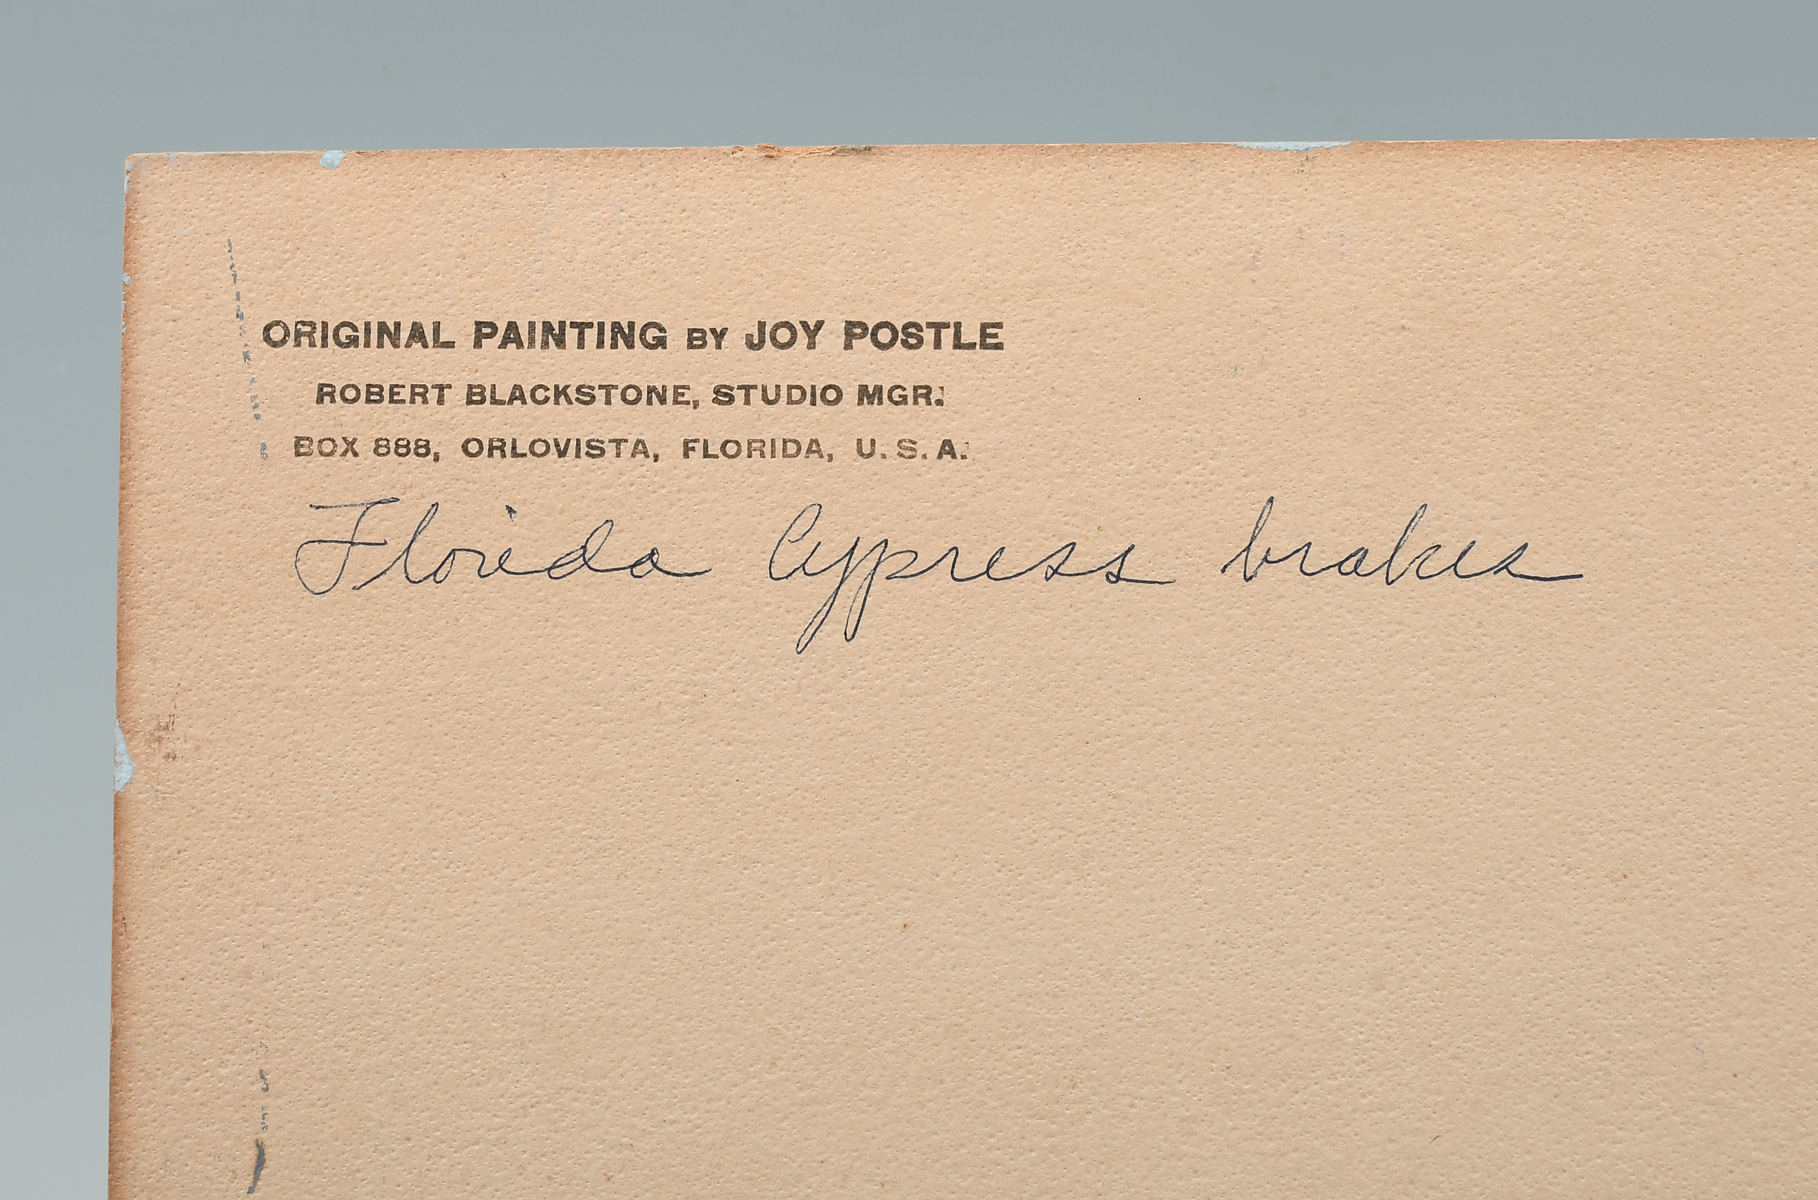 ORIGINAL PAINTING BY JOY POSTLE
ROBERT BLACKSTONE, STUDIO MGR.
BOX 888, ORLOVISTA, FLORIDA, U.S.A.
Florida Cypress brakes